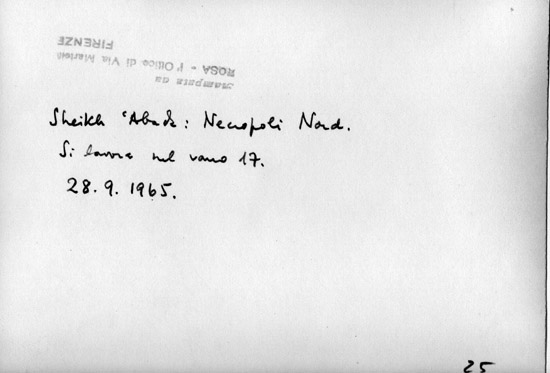 Stampata da
ROSA - l'Ottico di Via Martelli
FIRENZE
Sheikh 'Abada: Necropoli Nord.
Si lavora nel vano 17.
28.9.1965.
25